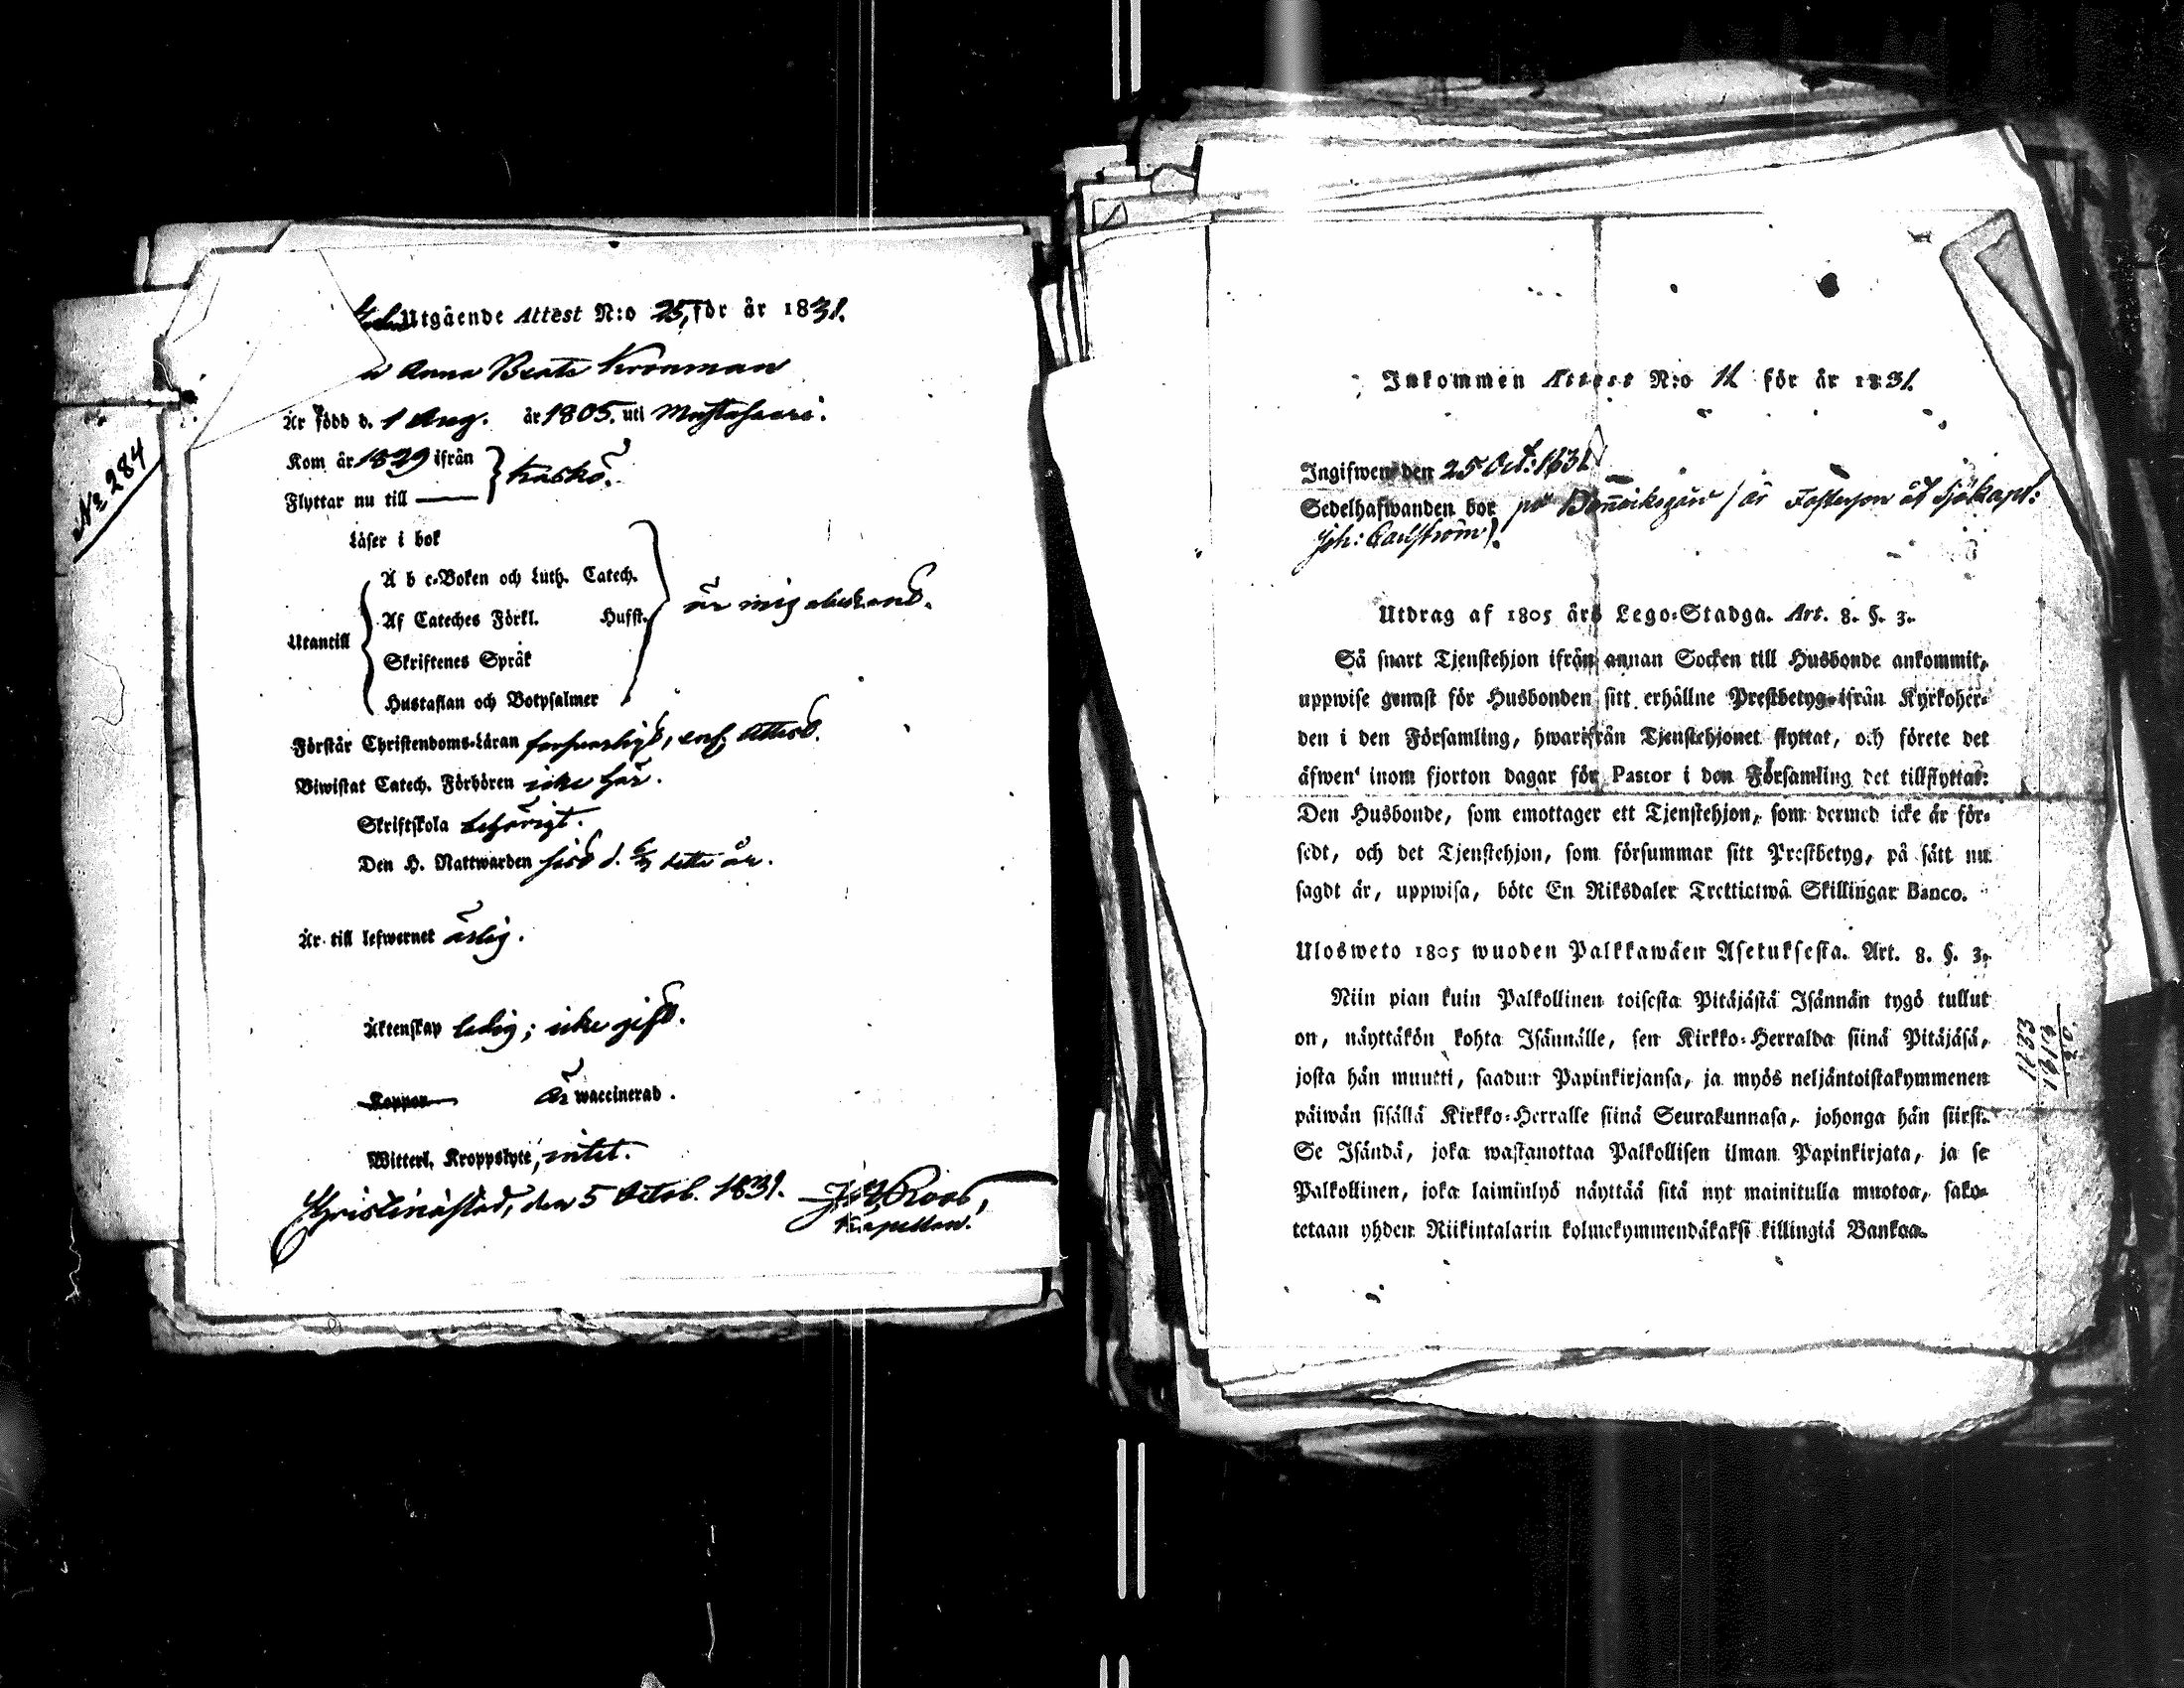 № 284
Utgående Attest N:o 25, för år 1831.
Anna Beata Kronman
Är född d. 1 Aug. år 1805. uti Mustasaari.
Kom år 1829 ifrån
Flyttar nu till ——— } Kaskö.
Läser i bok
A b c-Boken och Luth. Catech.
Af Cateches Förkl. Husft. är mig obekant.
Utantill
Skriftenes Språk
Hustaflan och Botpsalmer
Förstår Christendoms-Läran försvarligt, enl. Attest.
Biwistat Catech. Förhören icke här.
Skriftskola behörigt.
Den H. Nattwarden sist d. detta år.
Är till lefwernet ärlig.
Äktenskap ledig; icke gift.
Koppor Är waccinerad.
Witterl. Kroppslyte, intet.
Christinæstad, den 5 Octob. 1831. Roos,
Kapellan.
Inkommen Attest N:o 11 för år 1831.
Ingifwen den 25 Oct: 1831
Sedelhafwanden bor på / är Fosterson åt Sjökapt:
Joh: Carlström).
Utdrag af 1805 års Lego-Stadga. Art. 8. §. 3.
Så snart Tjenstehjon ifrån annan Socken till Husbonde ankommit,
uppwise genast för Husbonden sitt erhållne Prestbetyg ifrån Kyrkoher-
den i den Församling, hwarifrån Tjenstehjonet flyttat, och förete det
äfwen inom fjorton dagar för Pastor i den Församling det tillflyttat:
Den Husbonde, som emottager ett Tjenstehjon, som dermed icke är för-
sedt, och det Tjenstehjon, som försummar sitt Prestbetyg, på sätt nu
sagdt är, uppwisa, böte En Riksdaler Trettiotwå Skillingar Banco.
Ulosweto 1805 wuoden Palkkawäen Asetuksesta. Art. 8. §. 3.
Niin pian kuin Palkollinen toisesta Pitäjästä Isännän tygö tullut
on, näyttäkön kohta Isännälle, sen Kirkko-Herralda siinä Pitäjäsä,
josta hän muutti, saadun Papinkirjansa, ja myös neljäntoistakymmenen
päiwän sisällä Kirkko-Herralle siinä Seurakunnasa, johonga hän siirsi.
Se Isändä, joka wastanottaa Palkollisen ilman Papinkirjata, ja se
Palkollinen, joka laiminlyö näyttää sitä nyt mainitulla muotoa, sako-
tetaan yhden Riikintalarin kolmekymmendäkaksi killingiä Bankoa.